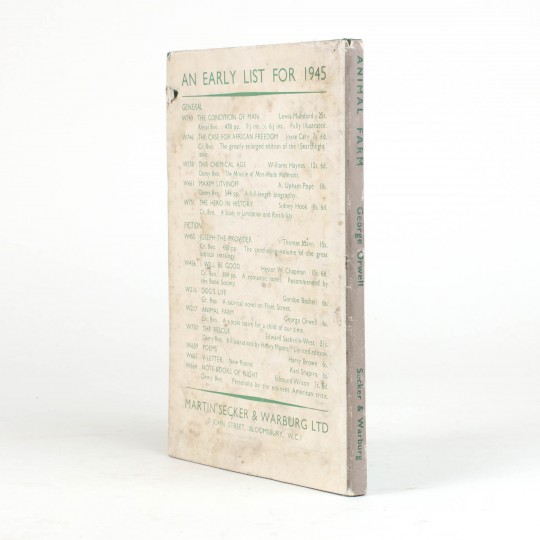 AN EARLY LIST FOR 1945
GENERAL
THE CONDITION OF MAN Lewis Mumford 25s.
Royal 8vo. 470 pp. 9½ ins. × 6¼ ins. Fully illustrated.
THE CASE FOR AFRICAN FREEDOM Joyce Cary 7s. 6d.
Cr. 8vo. The greatly enlarged edition of the Searchlight
book.
THIS CHEMICAL AGE Williams Haynes 12s. 6d.
Demy 8vo. The Miracle of Man-Made Materials.
MAXIM LITVINOFF A. Upham Pope
Demy 8vo. 544 pp. A full-length biography.
THE HERO IN HISTORY Sidney Hook 8s. 6d.
Cr. 8vo. A study in Limitation and Possibility.
FICTION
JOSEPH THE PROVIDER Thomas Mann 15s.
Cr. 8vo. The concluding volume of the great
biblical tetralogy.
I WILL BE GOOD Hester W. Chapman
Cr. 8vo. A romantic novel. Recommended by
the Book Society.
DOG'S LIFE Gordon Beckles 6s.
Cr. 8vo. A satirical novel on Fleet Street.
ANIMAL FARM George Orwell 6s.
Cr. 8vo. A satirical novel for a child of our time.
THE RESCUE Edward Sackville West
Demy 8vo. 6 Illustrations by Henry Moore. Limited edition.
POEMS Harry Brown 6s.
V-LETTER New Poems Karl Shapiro
NOTE-BOOKS OF NIGHT Edmund Wilson
Demy 8vo. Personalia by the eminent American critic.
MARTIN SECKER & WARBURG LTD
7 JOHN STREET, BLOOMSBURY, W.C.1
ANIMAL FARM George Orwell Secker & Warburg